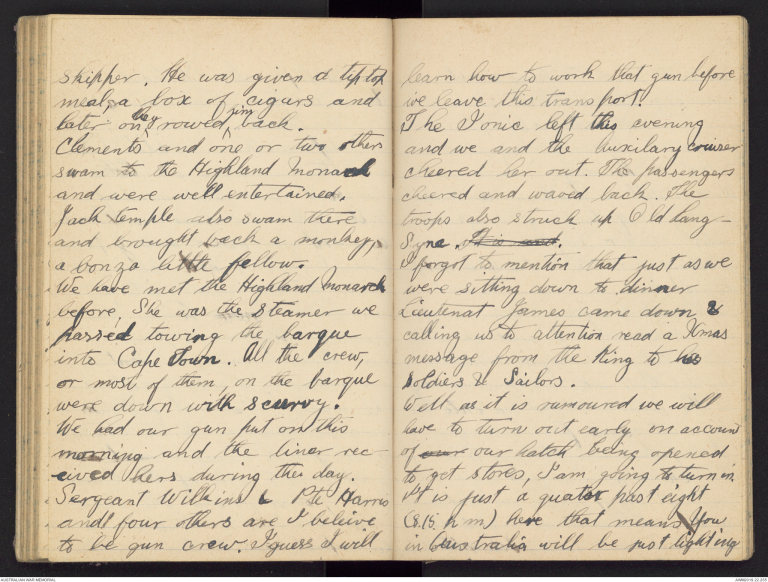 skipper. He was given a tip top
meal, a box of cigars and
later on they rowed him back.
Clements and one or two others
swam to the Highland Monarch
and were well entertained.
Jack Temple also swam there
and brought back a monkey,
a bonza little fellow.
We have met the Highland Monarch
before. She was the steamer we
passed towing the barque
into Cape Town. All the crew,
or most of them, on the barque
were down with scurvy.
We had our gun put on this
morning and the liner rec-
eived hers during the day.
Sergeant Wilkins & Pte Harris
and four others are I believe
to be gun crew. I guess I will
learn how to work that gun before
we leave this transport.
The Ionic left this evening
and we and the auxilary cruiser
cheered her out. The passengers
cheered and waved back. The
troops also struck up Old Lang-
Syne. It is and.
I forgot to mention that just as we
were sitting down to dinner
Lieutenat James came down &
calling us to attention read a Xmas
message from the King to his
Soldiers & Sailors.
Well as it is rumoured we will
have to turn out early on account
of our our hatch being opened
to get stores, I am going to turn in.
It is just a quater past eight
(8.15 p m) here that means you
in Australia will be just lighting
AUSTRALIAN WAR MEMORIAL